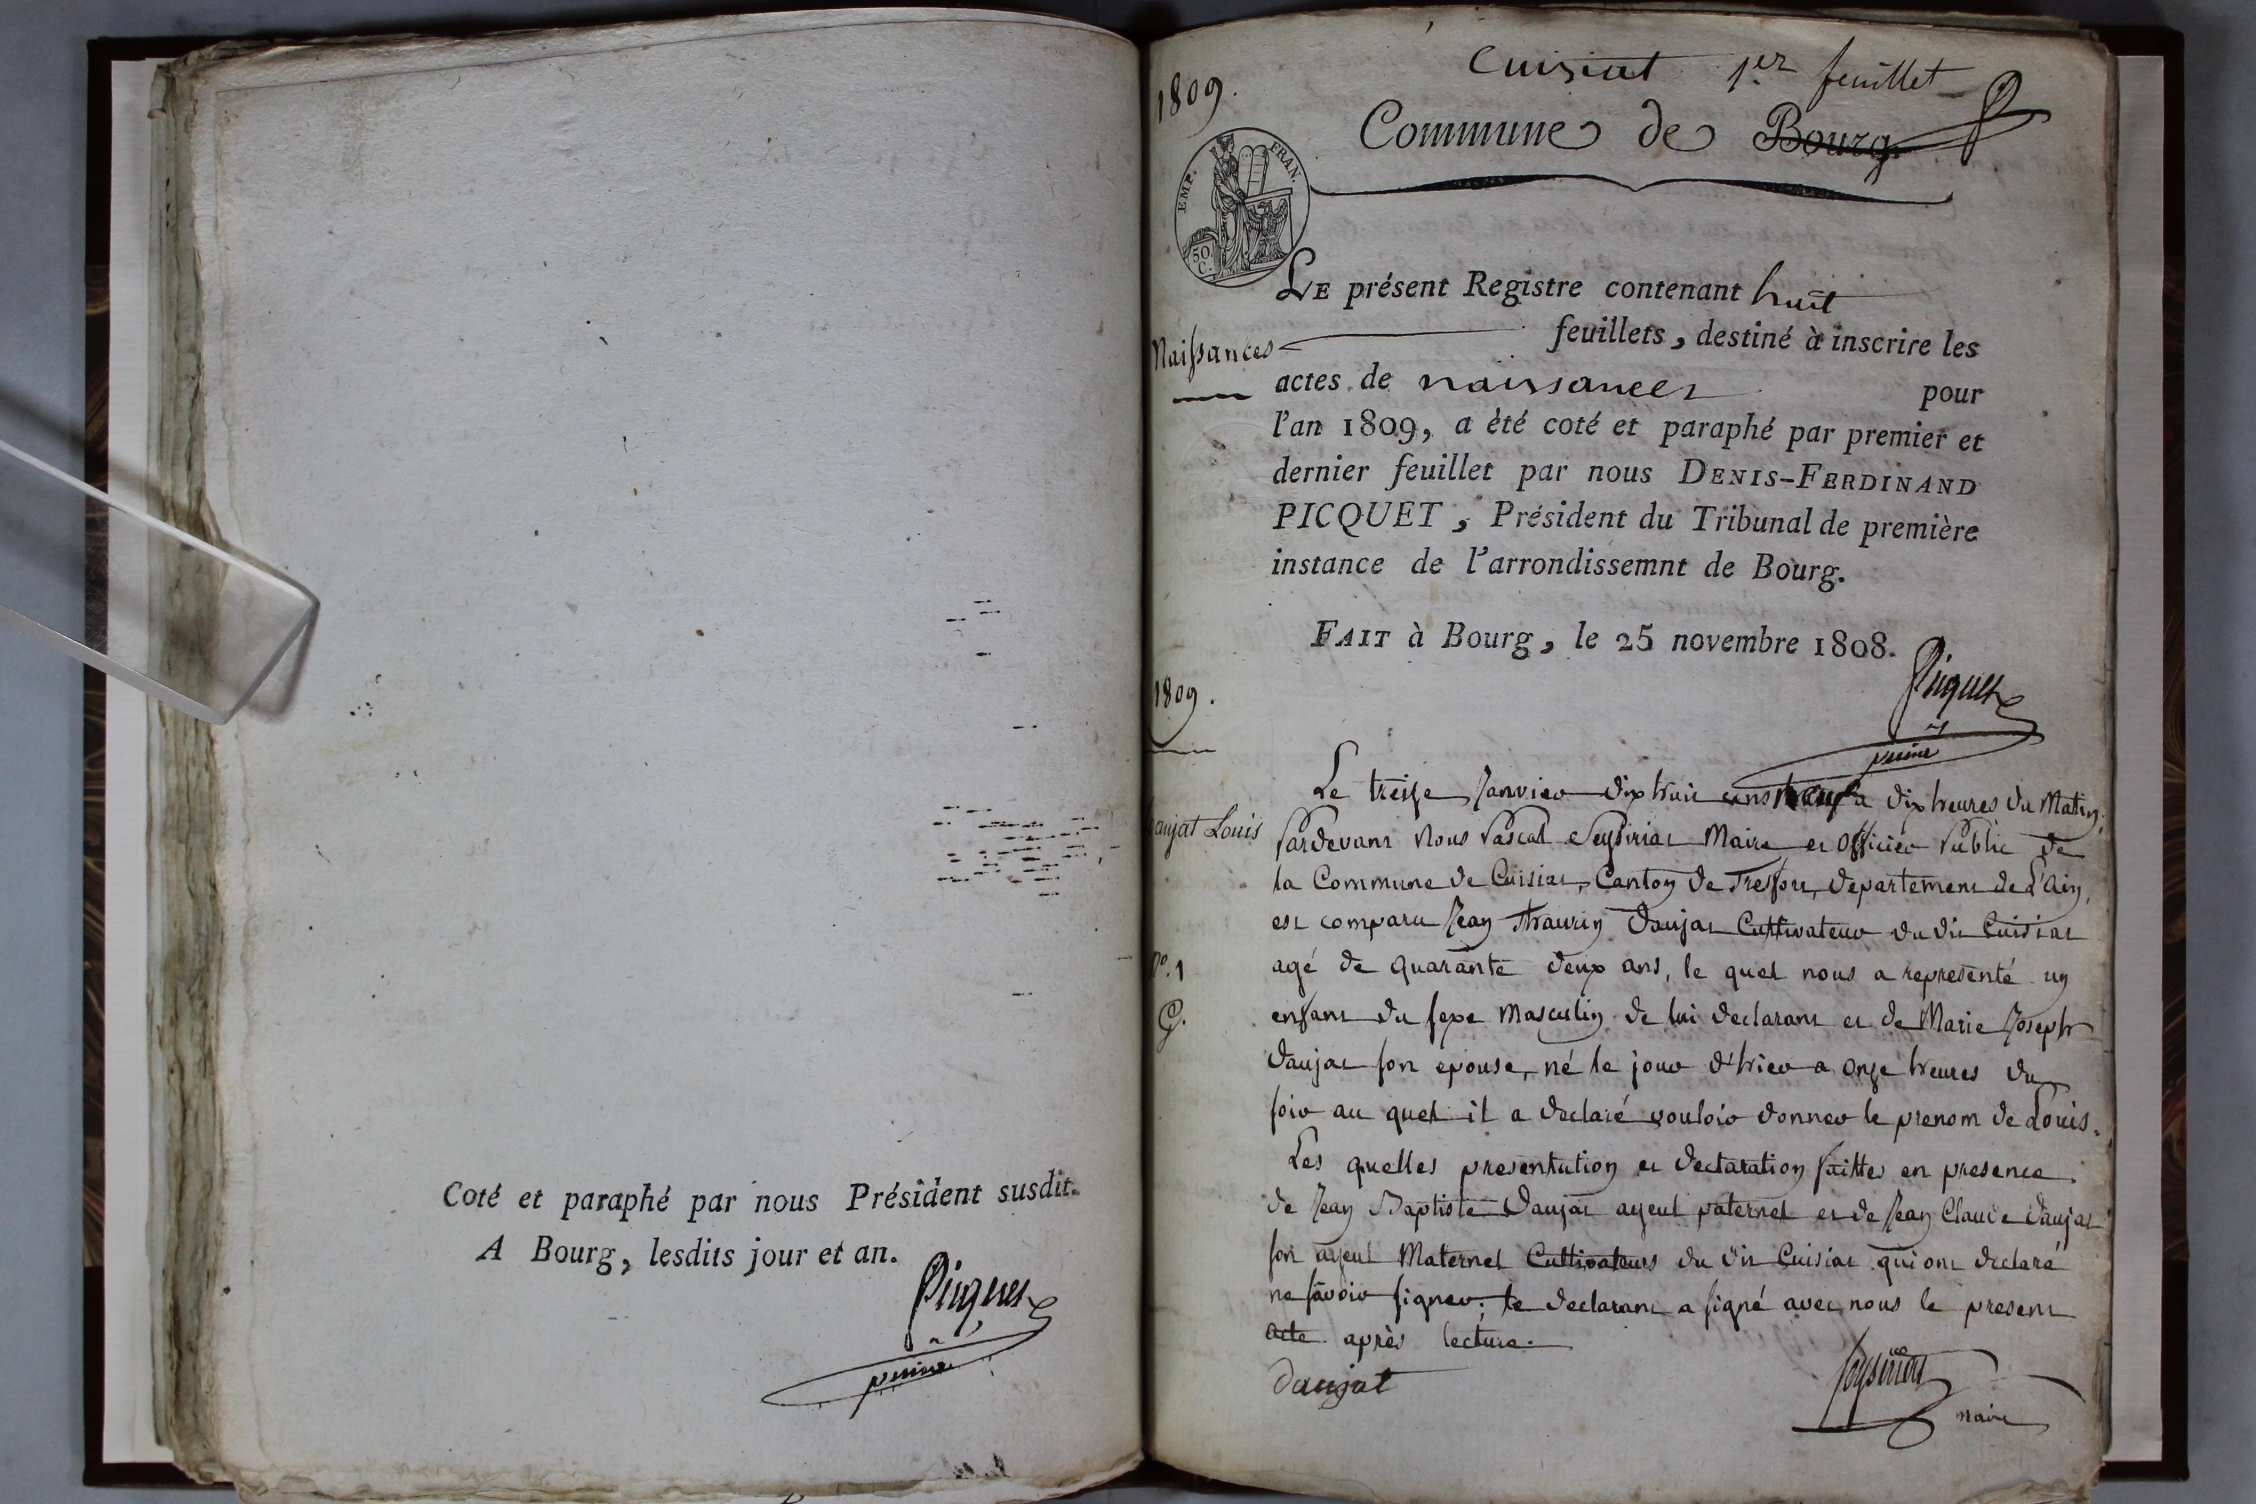 Coté et paraphé par nous Président susdit.
A Bourg, lesdits jour et an.
Picquet
1809.
Cuisiat 1er feuillet
Commune de Bourg
EMP. FRAN.
50 C.
LE présent Registre contenant huit
Naissances
feuillets, destiné à inscrire les
actes de naissances pour
l'an 1809, a été coté et paraphé par premier et
dernier feuillet par nous DENIS-FERDINAND
PICQUET, Président du Tribunal de première
instance de l'arrondissemnt de Bourg.
FAIT à Bourg, le 25 novembre 1808.
Picquet
1809.
Le treize Janvier dix huit cens neuf a dix heures du Matin,
aujat Louis
Pardevant Nous Pascal Seyssiriat Maire et officier Public de
la Commune de Cuisiat, Canton de Tresfort, departement de L'ain,
est comparu Jean Daujat Cultivateur du dit Cuisiat
agé de quarante deux ans, le quel nous a representé un
No. 1
G.
enfant du sexe Masculin de lui declarant et de Marie Joseph
Daujat son epouse, né le jour d'hier a onze heures du
soir au quel il a declaré vouloir donner le prenom de Louis.
Les quelles presentation et declaration faittes en presence
de Jean Baptiste Daujat ayeul paternel et de Jean Claude Daujat
son ayeul Maternel Cultivateurs du dit Cuisiat qui ont declaré
ne savoir signer; le declarant a signé avec nous le present
acte après lecture.
daujat
maire